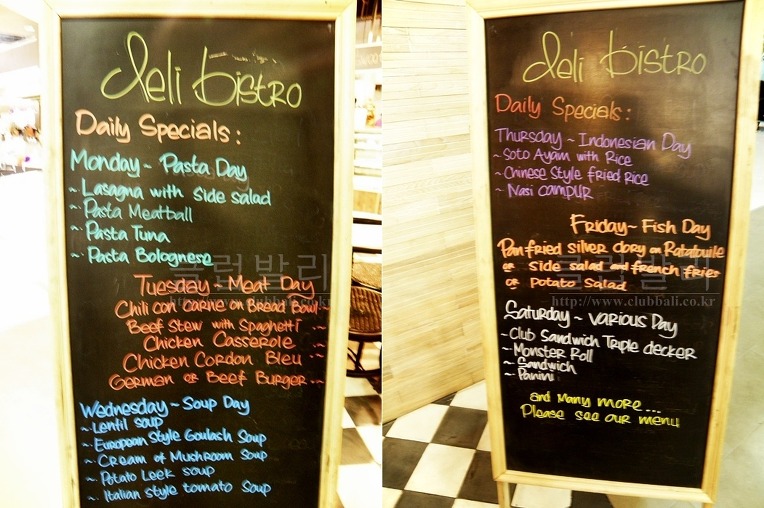 deli bistro
Daily Specials :
Monday ~ Pasta Day
~ Lasagna with side salad
~ Pasta Meatball
~ Pasta Tuna
~ Pasta Bolognese
Tuesday ~ Meat Day
Chili con carne on Bread Bowl ~
Beef Stew with Spaghetti ~
Chicken Casserole ~
Chicken Cordon Bleu ~
German or Beef Burger ~
Wednesday ~ Soup Day
~ Lentil soup
~ European Style Goulash Soup
~ Cream of Mushroom Soup
~ Potato Leek soup
~ Italian style tomato Soup
클럽발리
http://www.clubbali.co.kr
deli bistro
Daily Specials :
Thursday ~ Indonesian Day
~ Soto Ayam with Rice
~ Chinese Style Fried Rice
~ Nasi campur
Friday ~ Fish Day
Pan fried silver dory on Ratatouile
or side salad and french fries
or Potato Salad
Saturday ~ Various Day
~ Club Sandwich Triple decker
~ Monster Roll
~ Sandwich
~ Panini
and Many more ...
Please see our menu
클럽발리
http://www.clubbali.co.kr